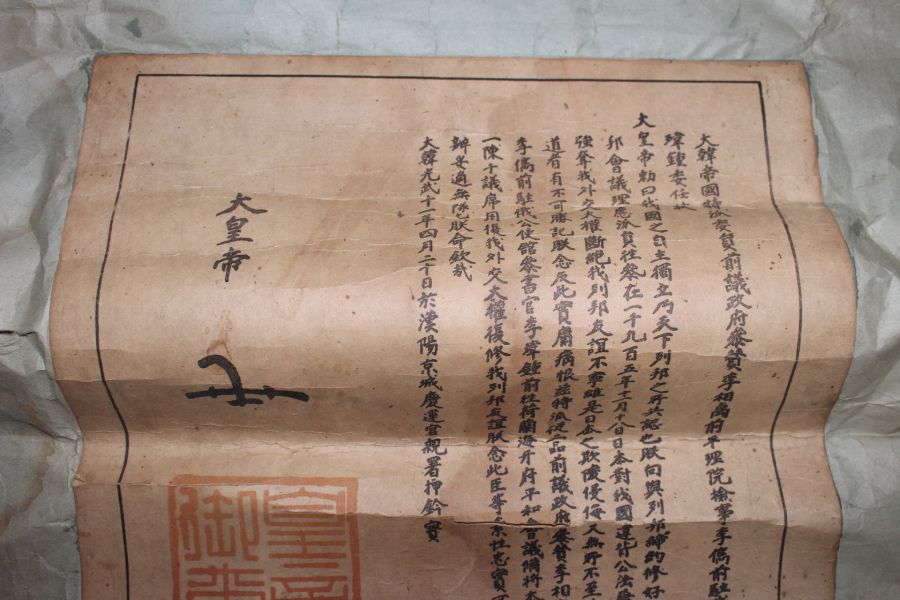 大韓帝國特派委員前議政府參贊李相卨前平理院檢事李儁前駐
瑋鍾委任狀
大皇帝勅曰我國之自主獨立乃天下列邦之所共認也朕向與列邦締約修好
邦會議理應派員往參在一千九百五年十一月十八日日本對我國違背公法
強奪我外交大權斷絕我列邦友誼不寧唯是日本之欺陵侵侮又無所不至
道者有不可勝記朕念及此實庸痛恨茲特派從一品前議政府參贊李相
李儁前駐俄公使館參書官李瑋鍾前往荷蘭海牙府平和會議備將本
一陳于議席用復我外交大權復修我列邦友誼朕念此臣等之素性忠實
辦妥適無隳朕命欽哉
大韓光武十一年四月二十日於漢陽京城慶運宮親署押鈐寶
大皇帝
皇帝
御